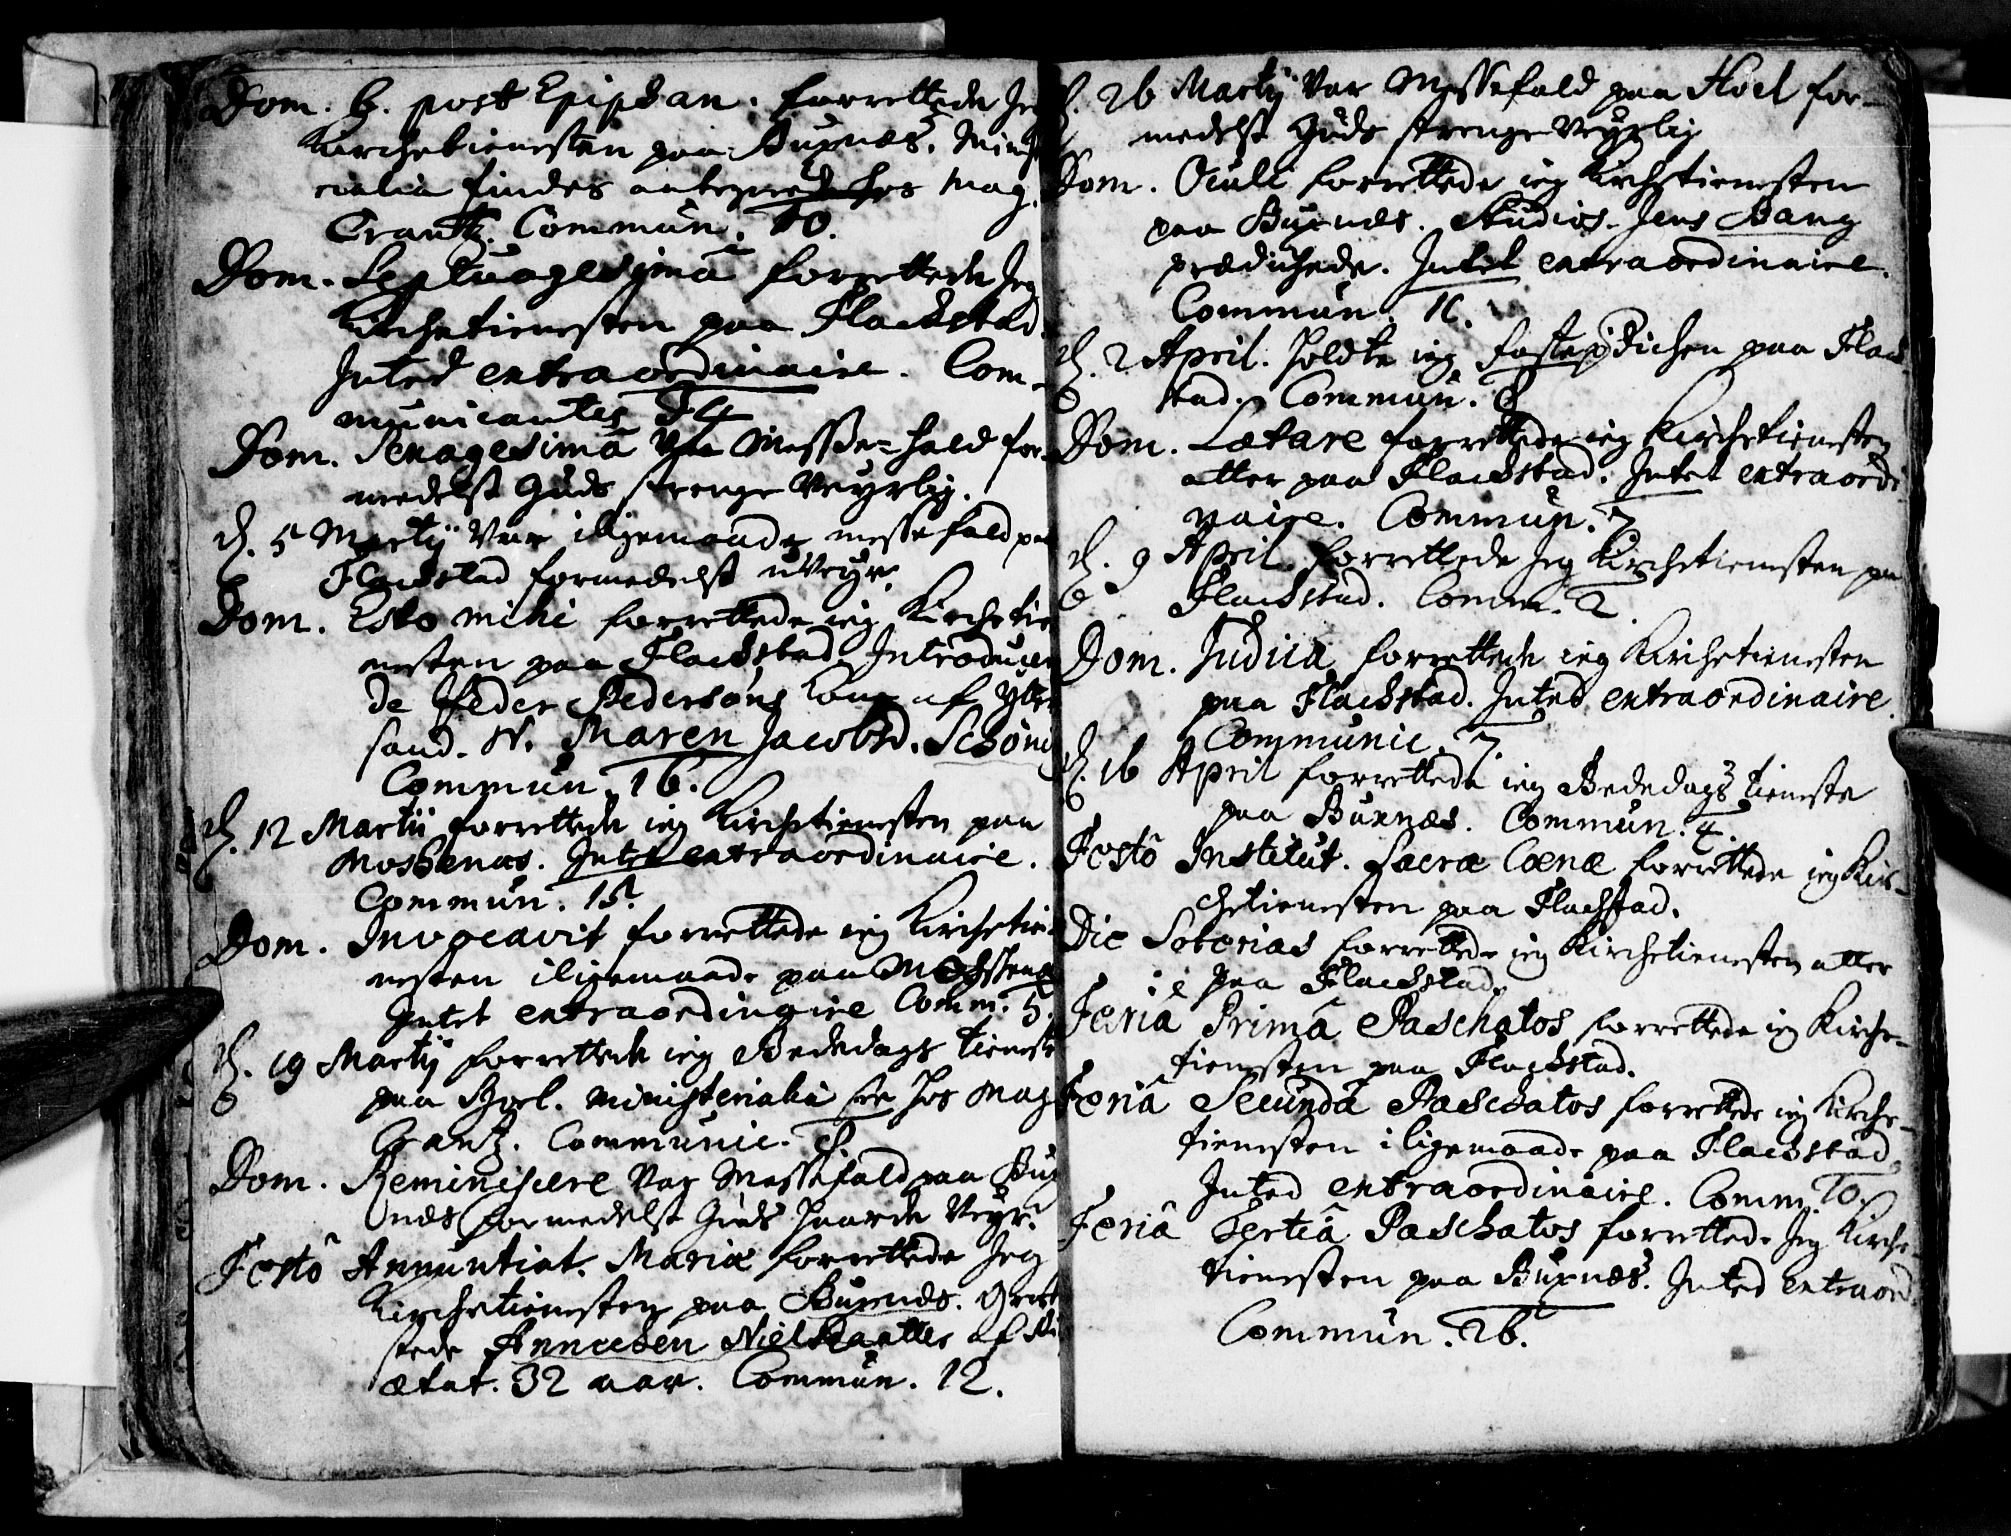 Dom. 6. post Epiphan. forrettede Jeg
Kirchetienesten paa Buxnæs. Minist
erialia findes antegned hos Mag.
Crantz. Commun. 10.
Dom. Septuagesimâ forrettede Jeg
Kirchetienesten paa Flackstad.
Inted extraordinaire. Com-
municantes 14
Dom. Sexagesimâ Var Messe-fald for-
medelst Guds strenge Veyrlig.
d. 5 Martij Var iligemaade messefald paa
Flackstad formedelst uVeyr.
Dom. Esto mihi forrettede ieg Kirchetie
nesten paa Flackstad Introducer
de Peder Pedersøns Kone af Ytter
sand. N. Maren Jacobsd. Schøning
Commun. 16.
d. 12 Martii forrettede ieg Kirchetienesten paa
Moschenæs. Intet extraordinaire.
Commun. 15.
Dom. Invocavit forrettede ieg Kirchetie-
nesten iligemaade paa Moschenæs
Intet extraordinaire Comm. 5.
d. 19 Martij forrettede ieg Bededags tieneste
paa Hoel. ministerialia see hos Mag
Crantz. Communic. 8
Dom. Reminiscere Var Messefald paa Bux
næs formedelst Guds haarde Veyr.
Festô Annuntiat. Mariæ forrettede Jeg
Kirchetienesten paa Buxnæs.
stede Niels
ætat. 32 aar. Commun. 12.
d. 26 Martij Var Messefald paa Hoel for-
medelst Guds strenge Veyrlig
Dom. Oculi forrettede ieg Kirchetienesten
paa Buxnæs. Studios. Jens Bang
prædichede. Intet extraordinaire.
Commun. 11.
d. 2 April. holdte ieg fasteprædichen paa Flack
stad. Commun. 8
Dom. Lætare forrettede ieg Kirchetienesten
atter paa Flackstad. Intet extraordi
naire. Commun. 7
d. 9 April forrettede Jeg Kirchetienesten paa
Flackstad. Comm. 2
Dom. Judica forrettede ieg Kirchetienesten
paa Flackstad. Inted extraordinaire.
Communic. 7.
d. 16 April forrettede ieg Bededags tieneste
paa Buxnæs. Commun. 4.
Festô Institut. Sacræ Cœnæ forrettede ieg Kir-
chetienesten paa Flachstad.
Die Soterias forrettede ieg Kirchetienesten atter
paa Flackstad.
Feriâ Primâ Paschatos forrettede ieg Kirche-
tienesten paa Flackstad.
Feriâ Secundâ Paschatos forrettede ieg Kirche-
tienesten iligemaade paa Flackstad.
Inted extraordinaire. Comm. 10.
Feriâ Tertiâ Paschatos forrettede Jeg Kirche-
tienesten paa Buxnæs. Inted extraord.
Commun. 26.